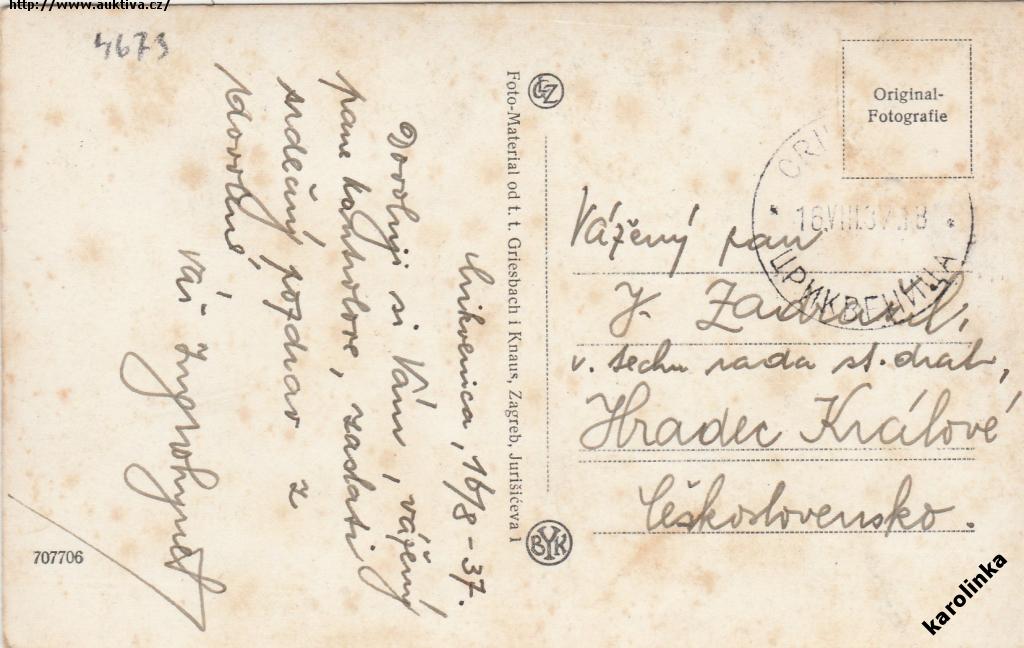 http://www.auktiva.cz/
4673
Crikvenica, 16/8-37.
Dovoluji si Vám, vážený
pane kontrolore, zaslati
srdečný pozdrav z
dovolené.
Váš
Foto-Material od t. t. Griesbach i Knaus, Zagreb, Jurišićeva 1
GKZ
BYK
Original-
Fotografie
CRI
16.VIII.37.18
ЦРИКВЕНИЦА
Vážený pan
J.
v. techn rada st. drah,
Hradec Králové
Československo.
707706
karolinka